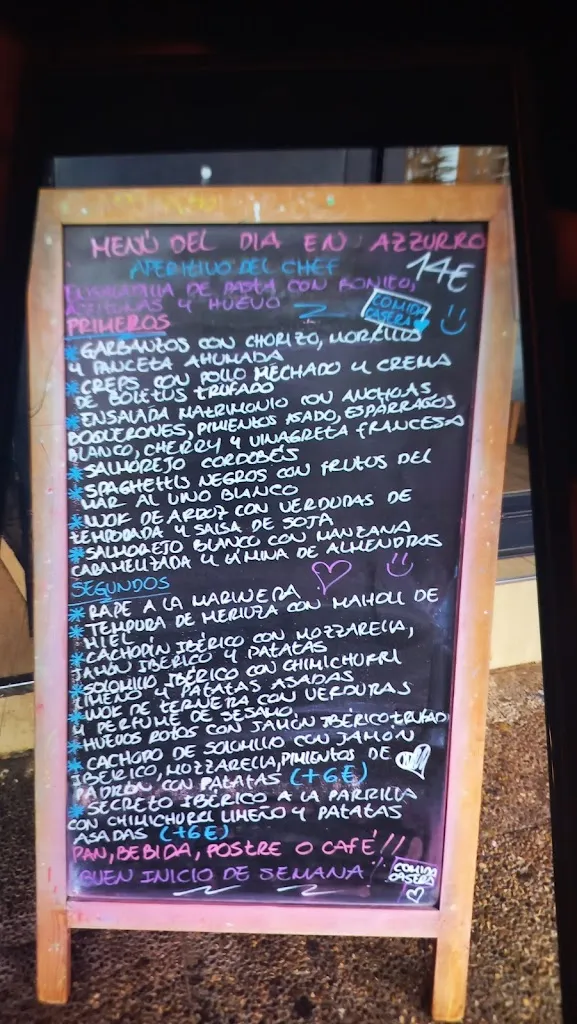 MENÚ DEL DIA EN AZZURRO
APERITIVO DEL CHEF 14€
ENSALADILLA DE PASTA CON BONITO,
ACEITUNAS Y HUEVO
COMIDA
CASERA
PRIMEROS
* GARBANZOS CON CHORIZO, MORCILLAS
Y PANCETA AHUMADA
* CREPS CON POLLO MECHADO Y CREMA
DE BOLETUS TRUFADO
* ENSALADA MATRIMONIO CON ANCHOAS
BOQUERONES, PIMIENTOS ASADO, ESPÁRRAGOS
BLANCO, CHERRY Y VINAGRETA FRANCESA
* SALMOREJO CORDOBÉS
* SPAGHETTIS NEGROS CON FRUTOS DEL
MAR AL VINO BLANCO
* WOK DE ARROZ CON VERDURAS DE
TEMPORADA Y SALSA DE SOJA
* SALMOREJO BLANCO CON MANZANA
CARAMELIZADA Y LÁMINA DE ALMENDRAS
SEGUNDOS
* RAPE A LA MARINERA
* TEMPURA DE MERLUZA CON MAHOLI DE
MIEL
* CACHODÍN IBÉRICO CON MOZZARELLA,
JAMÓN IBÉRICO Y PATATAS
* SOLOMILLO IBÉRICO CON CHIMICHURRI
LIMEÑO Y PATATAS ASADAS
* WOK DE TERNERA CON VERDURAS
Y PERFUME DE SESAMO
* HUEVOS ROTOS CON JAMÓN IBÉRICO TRUFADO
* CACHOPO DE SOLOMILLO CON JAMÓN
IBÉRICO, MOZZARELLA, PIMIENTOS DE
PADRÓN CON PATATAS (+6€)
* SECRETO IBÉRICO A LA PARRILLA
CON CHIMICHURRI LIMEÑO Y PATATAS
ASADAS (+6€)
PAN, BEBIDA, POSTRE O CAFÉ!!
BUEN INICIO DE SEMANA
COMIDA
CASERA